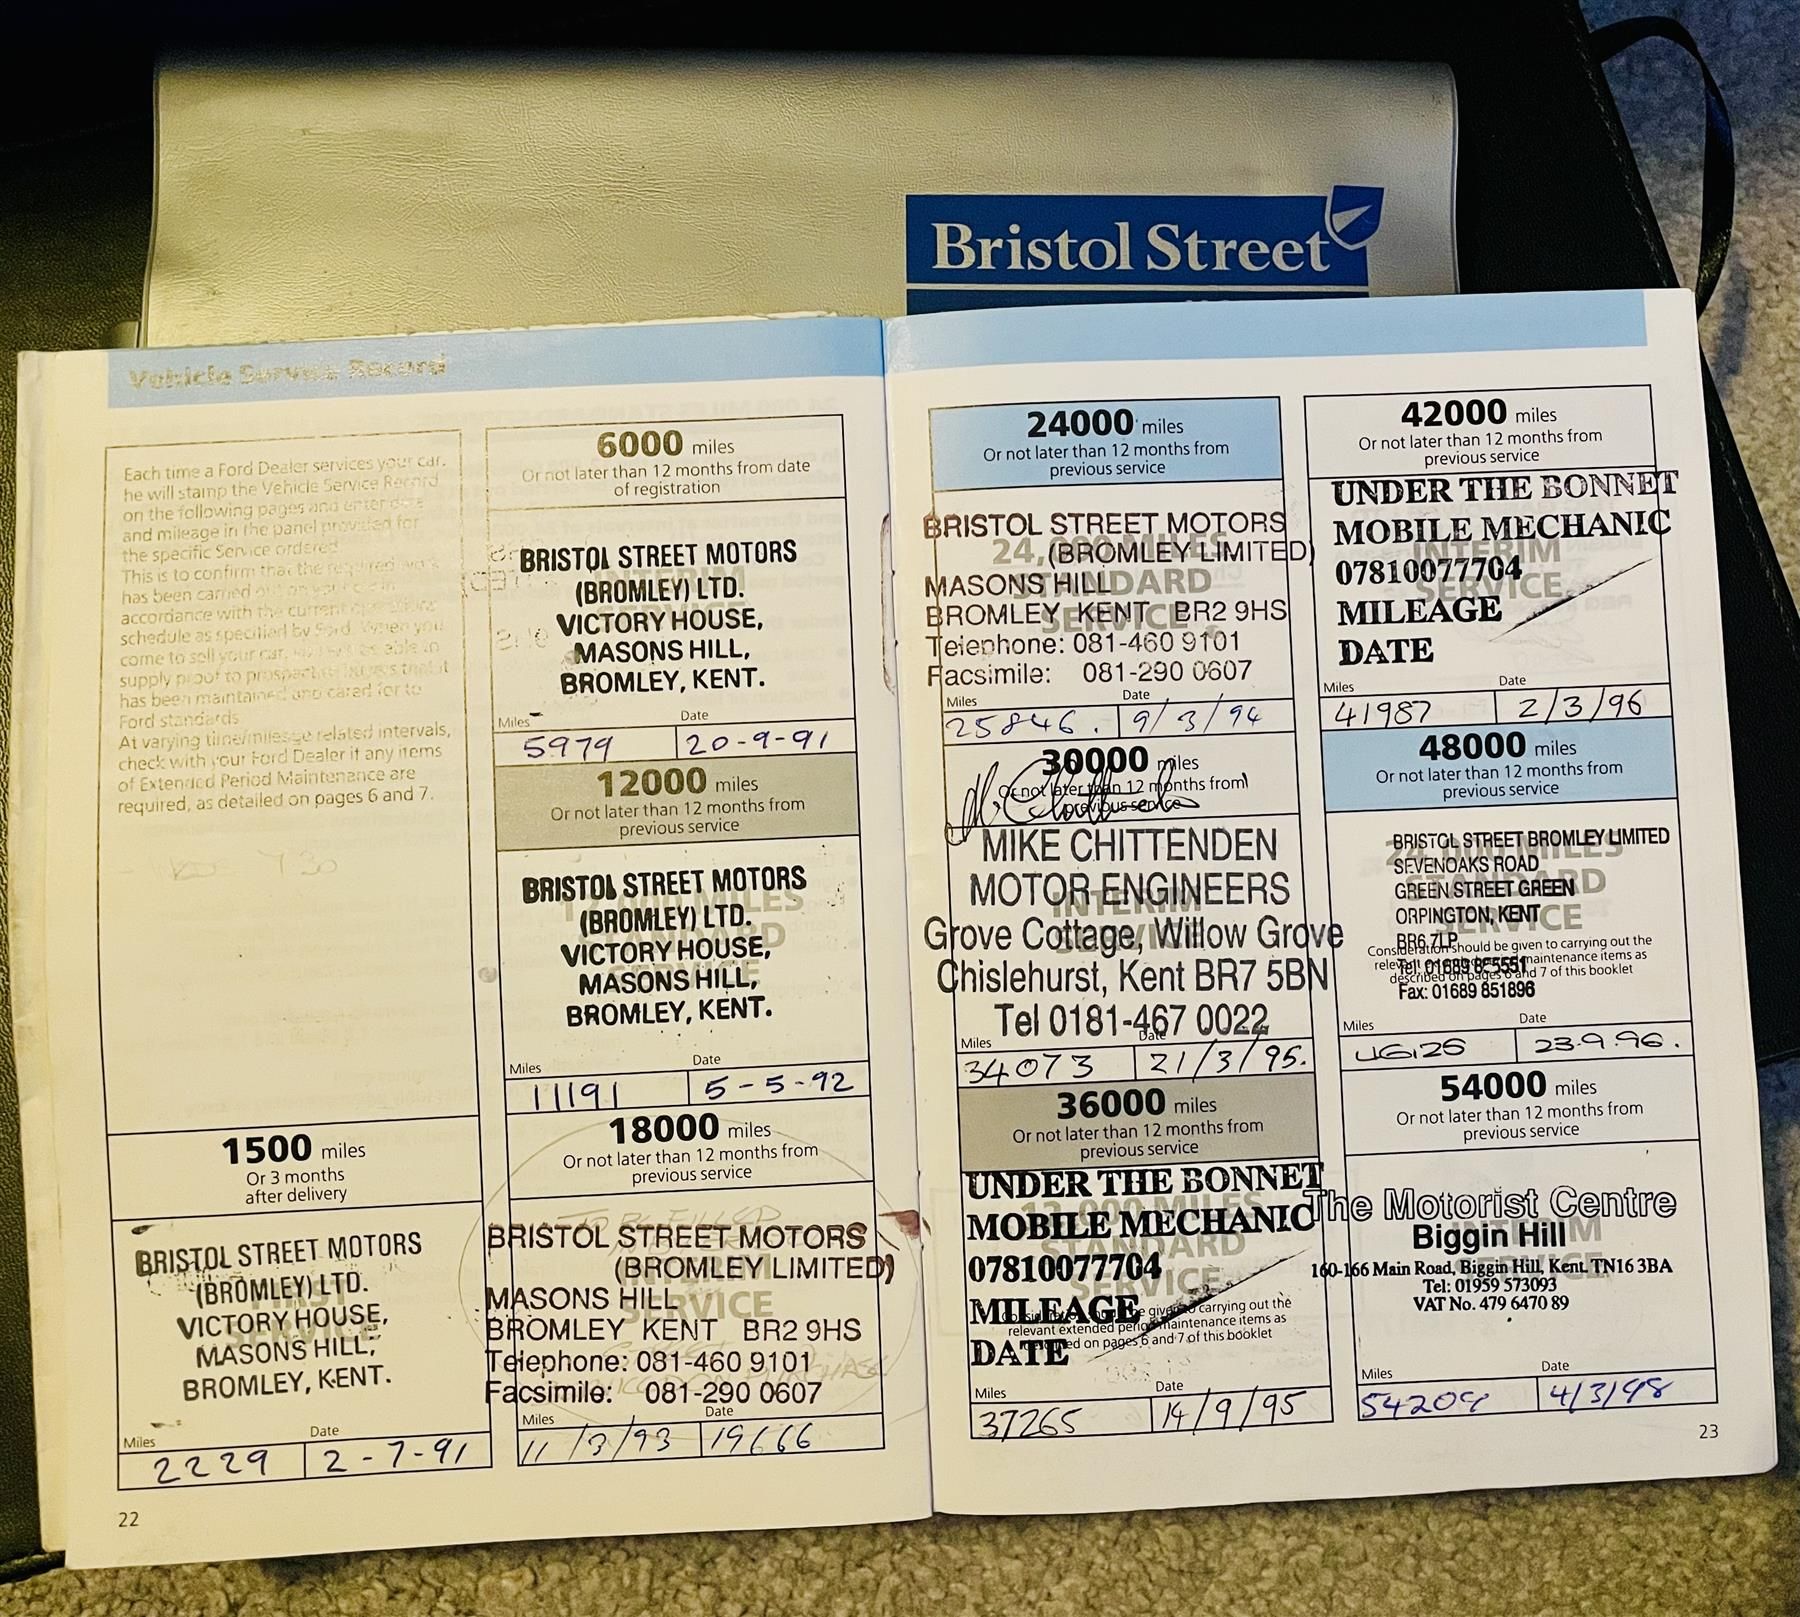 Bristol Street
Vehicle Service Record
Each time a Ford Dealer services your car,
he will stamp the Vehicle Service Record
on the following pages and enter date
and mileage in the panel provided for
the specific Service ordered.
This is to confirm that the required work
has been carried out on your car in
accordance with the current operations
schedule as specified by Ford. When you
come to sell your car, you will be able to
supply proof to prospective buyers that it
has been maintained and cared for to
Ford standards
At varying time/mileage related intervals,
check with your Ford Dealer if any items
of Extended Period Maintenance are
required, as detailed on pages 6 and 7.
1500 miles
Or 3 months
after delivery
FIRST
SERVICE
BRISTOL STREET MOTORS
(BROMLEY) LTD.
VICTORY HOUSE,
MASONS HILL,
BROMLEY, KENT.
Miles
Date
2229
2-7-91
22
6000 miles
Or not later than 12 months from date
of registration
INTERIM
SERVICE
BRISTOL STREET MOTORS
(BROMLEY) LTD.
VICTORY HOUSE,
MASONS HILL,
BROMLEY, KENT.
Miles
Date
5979
20-9-91
12000 miles
Or not later than 12 months from
previous service
12,000 MILES
STANDARD
SERVICE
BRISTOL STREET MOTORS
(BROMLEY) LTD.
VICTORY HOUSE,
MASONS HILL,
BROMLEY, KENT.
Miles
Date
11191
5-5-92
18000 miles
Or not later than 12 months from
previous service
INTERIM
SERVICE
BRISTOL STREET MOTORS
(BROMLEY LIMITED)
MASONS HILL
BROMLEY KENT BR2 9HS
Telephone: 081-460 9101
Facsimile: 081-290 0607
Miles
Date
11/3/93
19666
24000 miles
Or not later than 12 months from
previous service
24,000 MILES
STANDARD
SERVICE
BRISTOL STREET MOTORS
(BROMLEY LIMITED)
MASONS HILL
BROMLEY KENT BR2 9HS
Telephone: 081-460 9101
Facsimile: 081-290 0607
Miles
Date
25846.
9/3/94
30000 miles
Or not later than 12 months from
previous service
INTERIM
SERVICE
MIKE CHITTENDEN
MOTOR ENGINEERS
Grove Cottage, Willow Grove
Chislehurst, Kent BR7 5BN
Tel 0181-467 0022
Miles
Date
34073
21/3/95.
36000 miles
Or not later than 12 months from
previous service
12,000 MILES
STANDARD
SERVICE
Consideration should be given to carrying out the
relevant extended period maintenance items as
described on pages 6 and 7 of this booklet
UNDER THE BONNET
MOBILE MECHANIC
07810077704
MILEAGE
DATE
Miles
Date
37265
14/9/95
42000 miles
Or not later than 12 months from
previous service
INTERIM
SERVICE
UNDER THE BONNET
MOBILE MECHANIC
07810077704
MILEAGE
DATE
Miles
Date
41987
2/3/96
48000 miles
Or not later than 12 months from
previous service
24,000 MILES
STANDARD
SERVICE
Consideration should be given to carrying out the
relevant extended period maintenance items as
described on pages 6 and 7 of this booklet
BRISTOL STREET BROMLEY LIMITED
SEVENOAKS ROAD
GREEN STREET GREEN
ORPINGTON, KENT
BR6 7LP
Tel: 01689
Fax: 01689 851896
Miles
Date
23.9.96.
54000 miles
Or not later than 12 months from
previous service
INTERIM
SERVICE
The Motorist Centre
Biggin Hill
160-166 Main Road, Biggin Hill, Kent. TN16 3BA
Tel: 01959 573093
VAT No. 479 6470 89
Miles
Date
54209
4/3/98
23